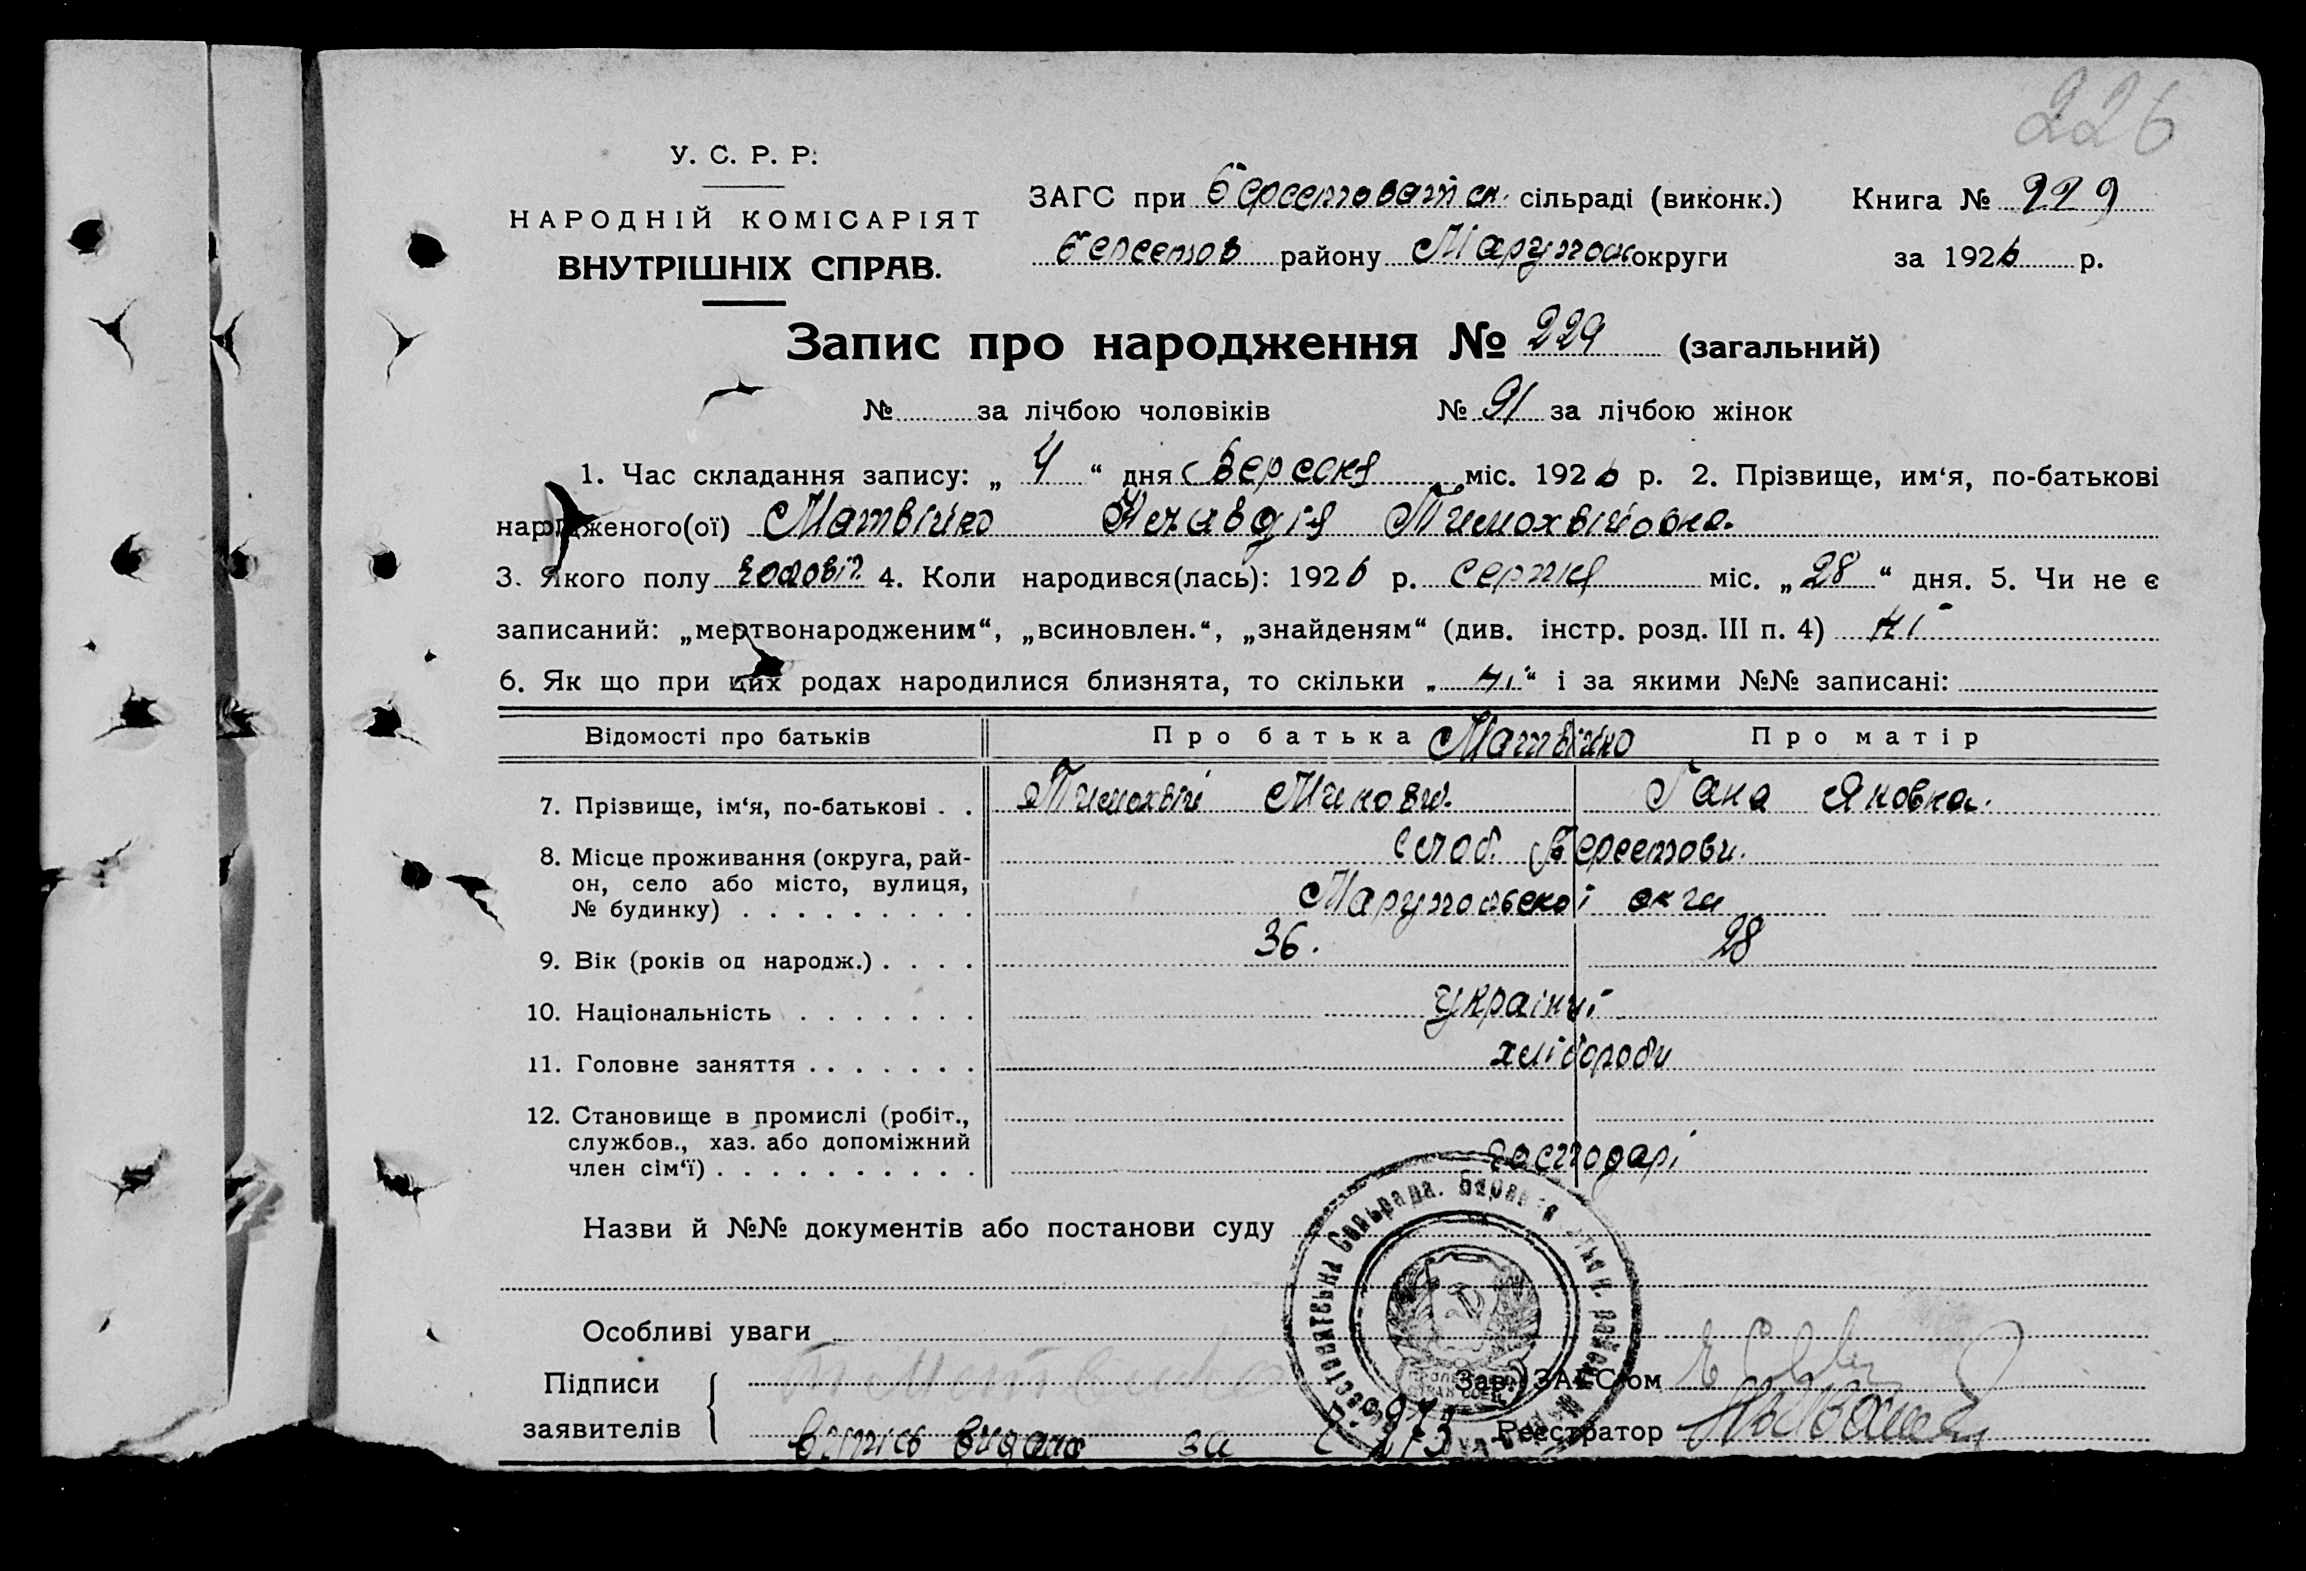 226
У. С. Р. Р.
НАРОДНІЙ КОМІСАРІЯТ
ВНУТРІШНІХ СПРАВ.
ЗАГС при Берестоватск. сільраді (виконк.) Книга № 229
Берестов району Маруполь округи за 1926 р.
Запис про народження № 229 (загальний)
№ за лічбою чоловіків № 91 за лічбою жінок
1. Час складання запису: „ 4 “ дня Вересня міс. 1926 р. 2. Прізвище, им‘я, по-батькові
народженого(ої) Матвійко Клавдія Тимохвійовна.
3. Якого полу 4. Коли народився(лась): 1926 р. серпня міс. „28“ дня. 5. Чи не є
записаний: „мертвонародженим“, „всиновлен.“, „знайденям“ (див. інстр. розд. III п. 4) ні
6. Як що при цих родах народилися близнята, то скільки „ ні “ і за якими №№ записані:
Відомості про батьків Про батька Матвійко Про матір
7. Прізвище, ім‘я, по-батькові . . Тимохвій Микови. Гана Яковна.
8. Місце проживання (округа, рай-
он, село або місто, вулиця,
№ будинку) . . . . . . . . .
Слоб. Берестови.
Марупольскоі окги
9. Вік (років од народж.) . . . . 36. 28
10. Національність . . . . . . . украінці
11. Головне заняття . . . . . . . хлібороби
12. Становище в промислі (робіт.,
службов., хаз. або допоміжний
член сім‘ї) . . . . . . . . . . господарі
Назви й №№ документів або постанови суду
Особливі уваги
Підписи
заявителів
Т Матвийко
Зав. ЗАГС‘ом
Реєстратор
вепись видана за № 273